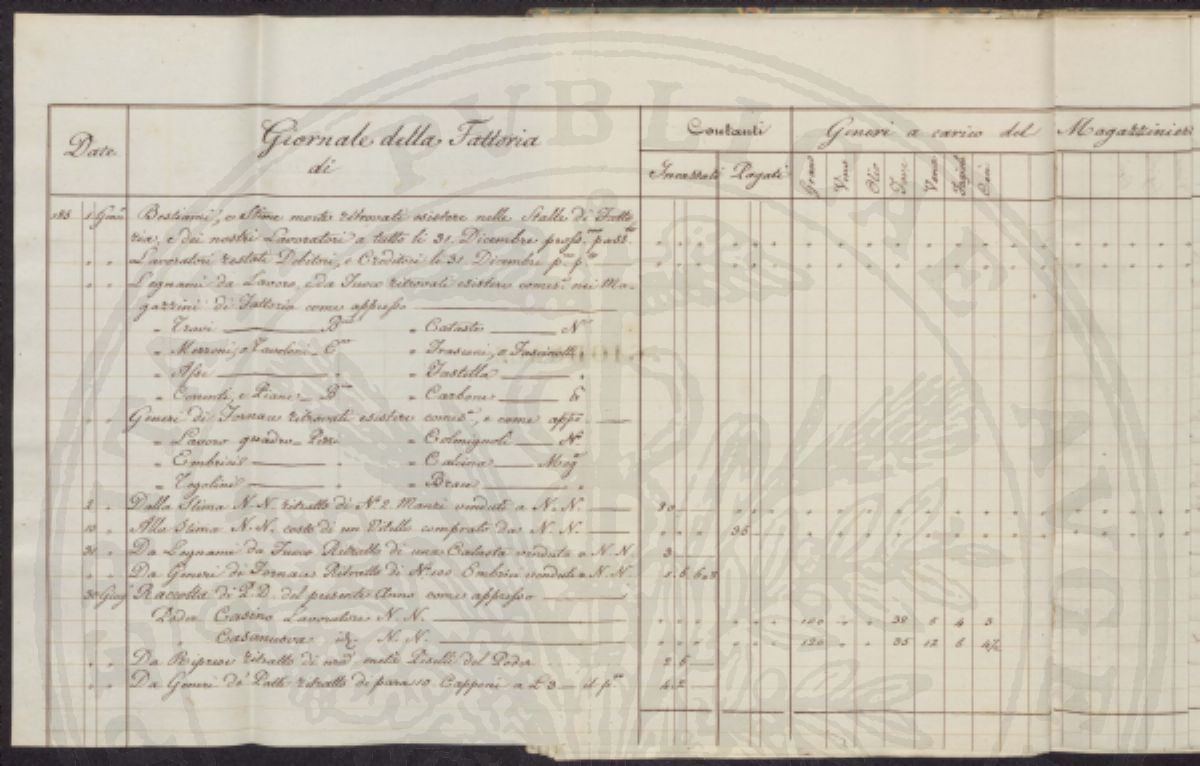 PVBLICAE
Date
Giornale della Fattoria
di
Contanti
Generi a carico del Magazzinier
Incassati Pagati Grano Vino Olio Fave Vena Fagioli Ceci
183 1 Genn Bestiami, e Stime morte ritrovati esistere nelle Stalle di Fatto
ria, e dei nostri Lavoratori a tutto li 31. Dicembre pross. pass.
Lavoratori restati Debitori, e Creditori li 31. Dicembre p. p.
Legnami da Lavoro, e da Fuoco ritrovati esistere comes. nei Ma-
gazzini di Fattoria come appresso
Travi B Cataste N
Morroni, e Tavoloni C Frasconi, e Fascinotti
Assi Fastella
Correnti, e Piane B Carbone
Generi di Fornace ritrovati esistere comes., e come app
Lavoro quadro Pezzi Colmignoli N
Embrici Calcina Mog
Tegolini Brace
2 Dalla Stima N. N. ritratto di N. 2 Manzi venduti a N. N. 30
10 Alla Stima N. N. costo di un Vitello comprato da N. N. 36
31 Da Legnami da Fuoco Ritratto di una Catasta venduta a N. N. 3
Da Generi di Fornace Ritratto di N. 100 Embrici venduti a N. N. 1. 6. 6. 8
30 Giug Raccolta di P. D. del presente Anno come appresso
Poder Casino Lavoratore N. N. 100 38 6 4 3
Casanuova id. N. N. 120 35 12 6 4½
Da Riprese ritratto di metà Piselli del Poder 2 6
Da Generi de' Patti ritratto di para 10. Capponi a £ 3 il p. 4 2